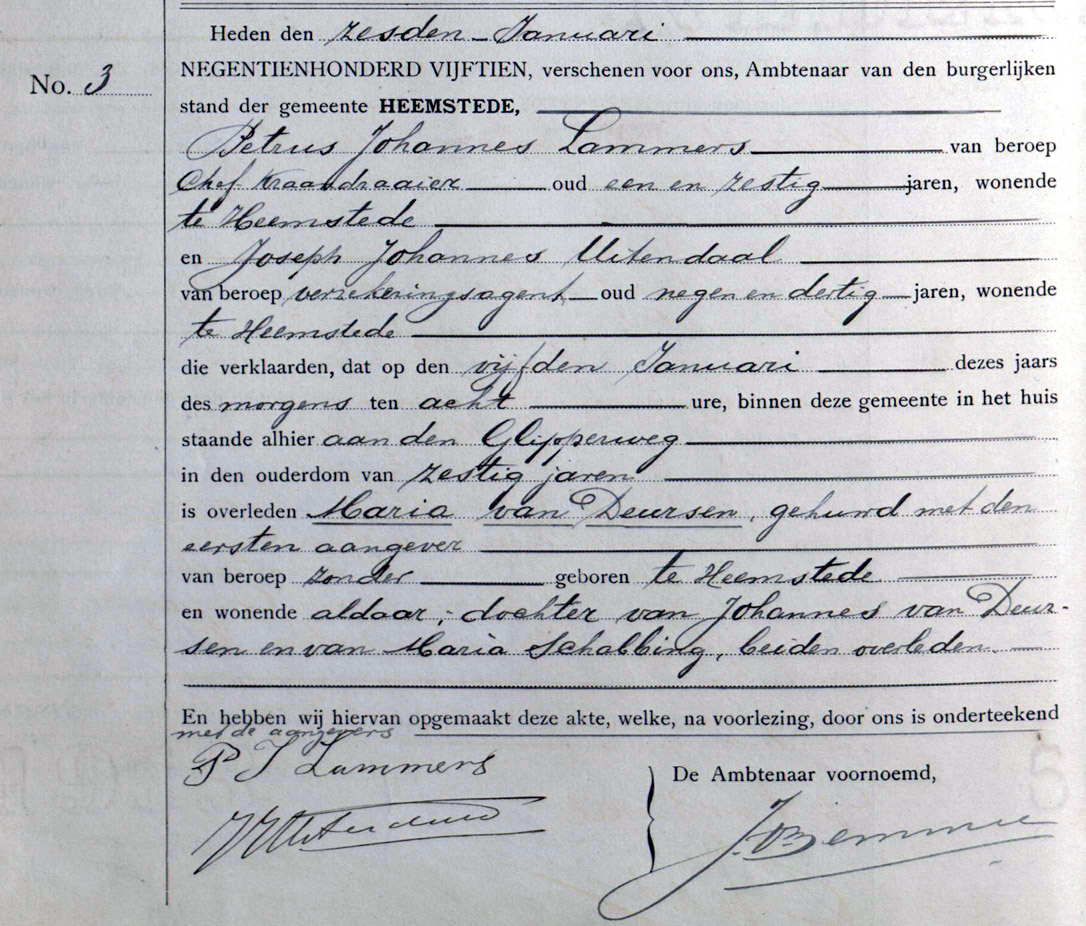 Heden den zesden Januari
No. 3
NEGENTIENHONDERD VIJFTIEN, verschenen voor ons, Ambtenaar van den burgerlijken
stand der gemeente HEEMSTEDE,
Petrus Johannes Lammers van beroep
Chef Kraandraaier oud een en zestig jaren, wonende
te Heemstede
en Joseph Johannes Uitendaal
van beroep verzekeringsagent oud negen en dertig jaren, wonende
te Heemstede
die verklaarden, dat op den vijfden Januari dezes jaars
des morgens ten acht ure, binnen deze gemeente in het huis
staande alhier aan den Glipperweg
in den ouderdom van zestig jaren
is overleden Maria van Deursen, gehuwd met den
eersten aangever
van beroep zonder geboren te Heemstede
en wonende aldaar; dochter van Johannes van Deur-
sen en van Maria Schabbing, beiden overleden.
En hebben wij hiervan opgemaakt deze akte, welke, na voorlezing, door ons is onderteekend
met de aangevers
P J Lammers
De Ambtenaar voornoemd,